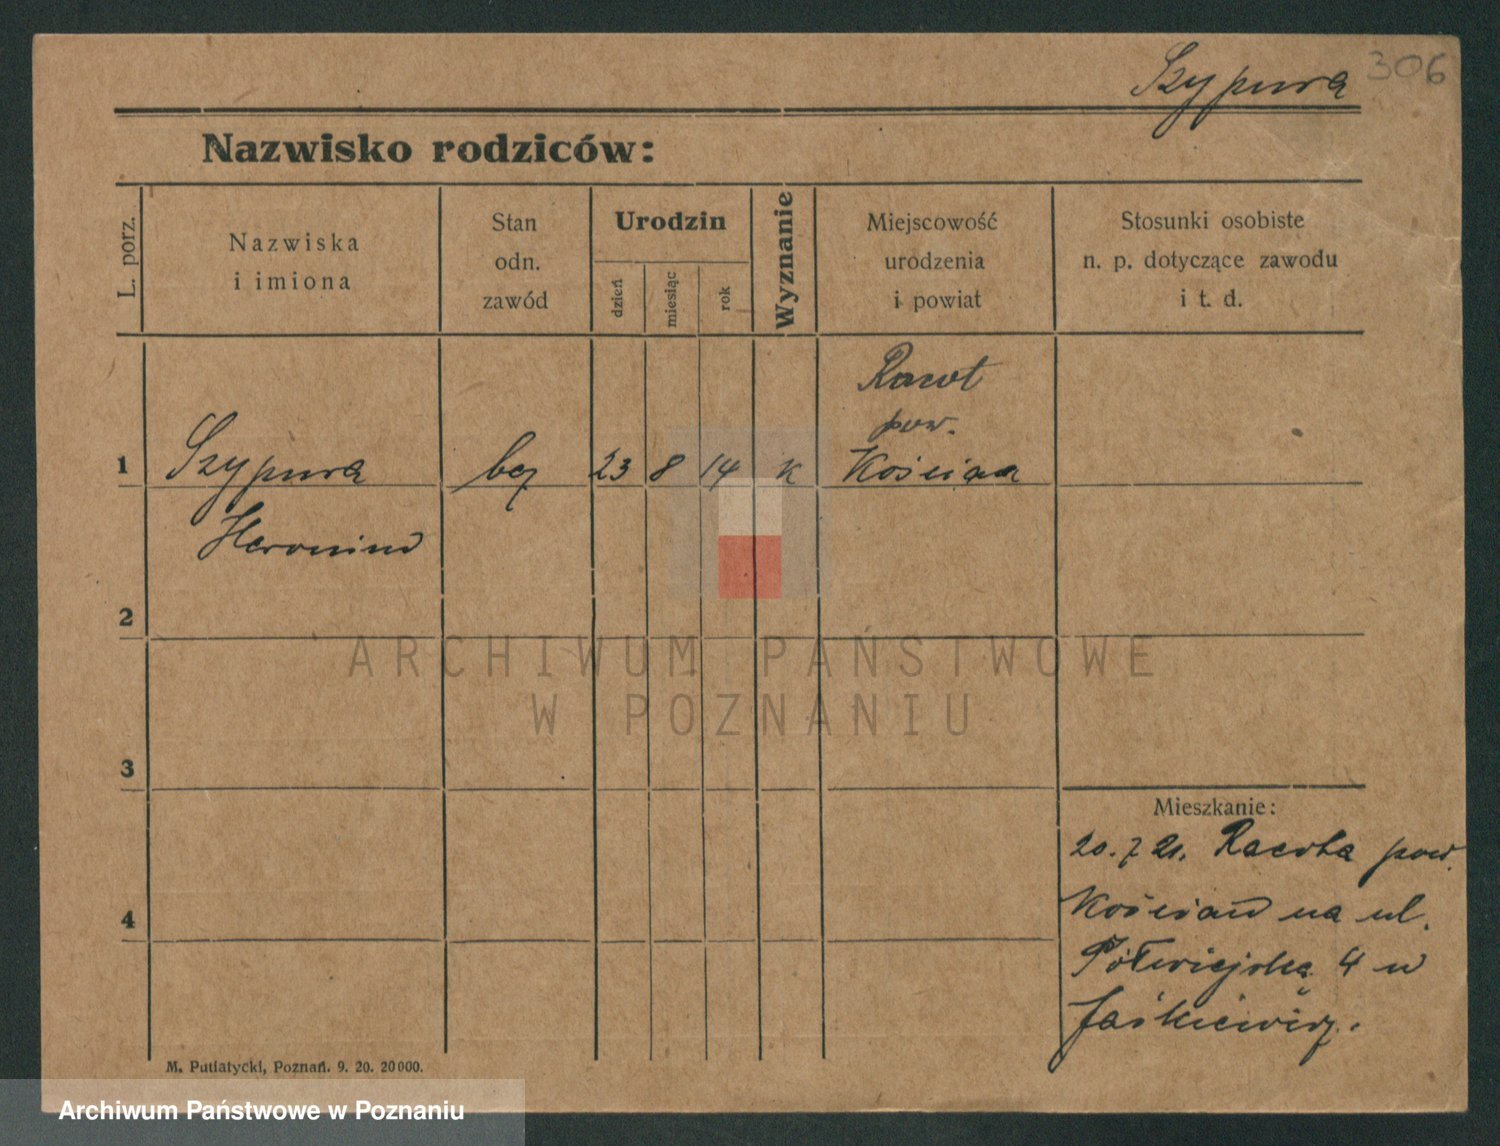 Szypura 306
Nazwisko rodziców:
L. porz.
Nazwiska
i imiona
Stan
odn.
zawód
Urodzin
dzień
miesiąc
rok
Wyznanie
Miejscowość
urodzenia
i powiat
Stosunki osobiste
n. p. dotyczące zawodu
i t. d.
Racot
pow.
1 Szypura bez 23 8 14 k Kościan
Heronim
2
ARCHIWUM PAŃSTWOWE
W POZNANIU
3
Mieszkanie:
20. 7 21. Racota pow.
4
Kościan na ul.
Półwiejską 4 u
Jaśkiewicz.
M. Putiatycki, Poznań. 9. 20. 20000.
Archiwum Państwowe w Poznaniu